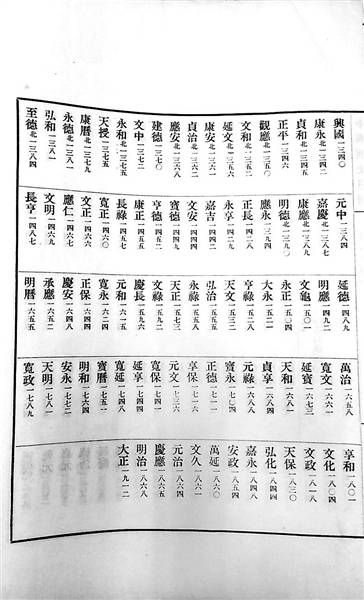 興國一三四〇
康永北一三四二
貞和北一三四五
正平一三四六
觀應北一三五〇
文和北一三五二
延文北一三五六
康安北一三六一
貞治北一三六二
應安北一三六八
建德一三七〇
文中一三七二
永和北一三七五
天授一三七五
康曆北一三七九
永德北一三八一
弘和一三八一
至德北一三八四
元中一三八四
嘉慶北一三八七
康應北一三八九
明德北一三九〇
應永一三九四
正長一四二八
永享一四二九
嘉吉一四四一
文安一四四四
寶德一四四九
亨德一四五二
康正一四五五
長祿一四五七
寬正一四六〇
文正一四六六
應仁一四六七
文明一四六九
長亨一四八七
延德一四八九
明應一四九二
文龜一五〇一
永正一五〇四
大永一五二一
亨祿一五二八
天文一五三二
弘治一五五五
永祿一五五八
天正一五七三
文祿一五九二
慶長一五九六
元和一六一五
寬永一六二四
正保一六四四
慶安一六四八
承應一六五二
明曆一六五五
萬治一六五八
寬文一六六一
延寶一六七三
天和一六八一
貞享一六八四
元祿一六八八
寶永一七〇四
正德一七一一
享保一七一六
元文一七三六
寬保一七四一
延享一七四四
寬延一七四八
寶曆一七五一
明和一七六四
安永一七七二
天明一七八一
寬政一七八九
享和一八〇一
文化一八〇四
文政一八一八
天保一八三〇
弘化一八四四
嘉永一八四八
安政一八五四
萬延一八六〇
文久一八六一
元治一八六四
慶應一八六五
明治一八六八
大正一九一二